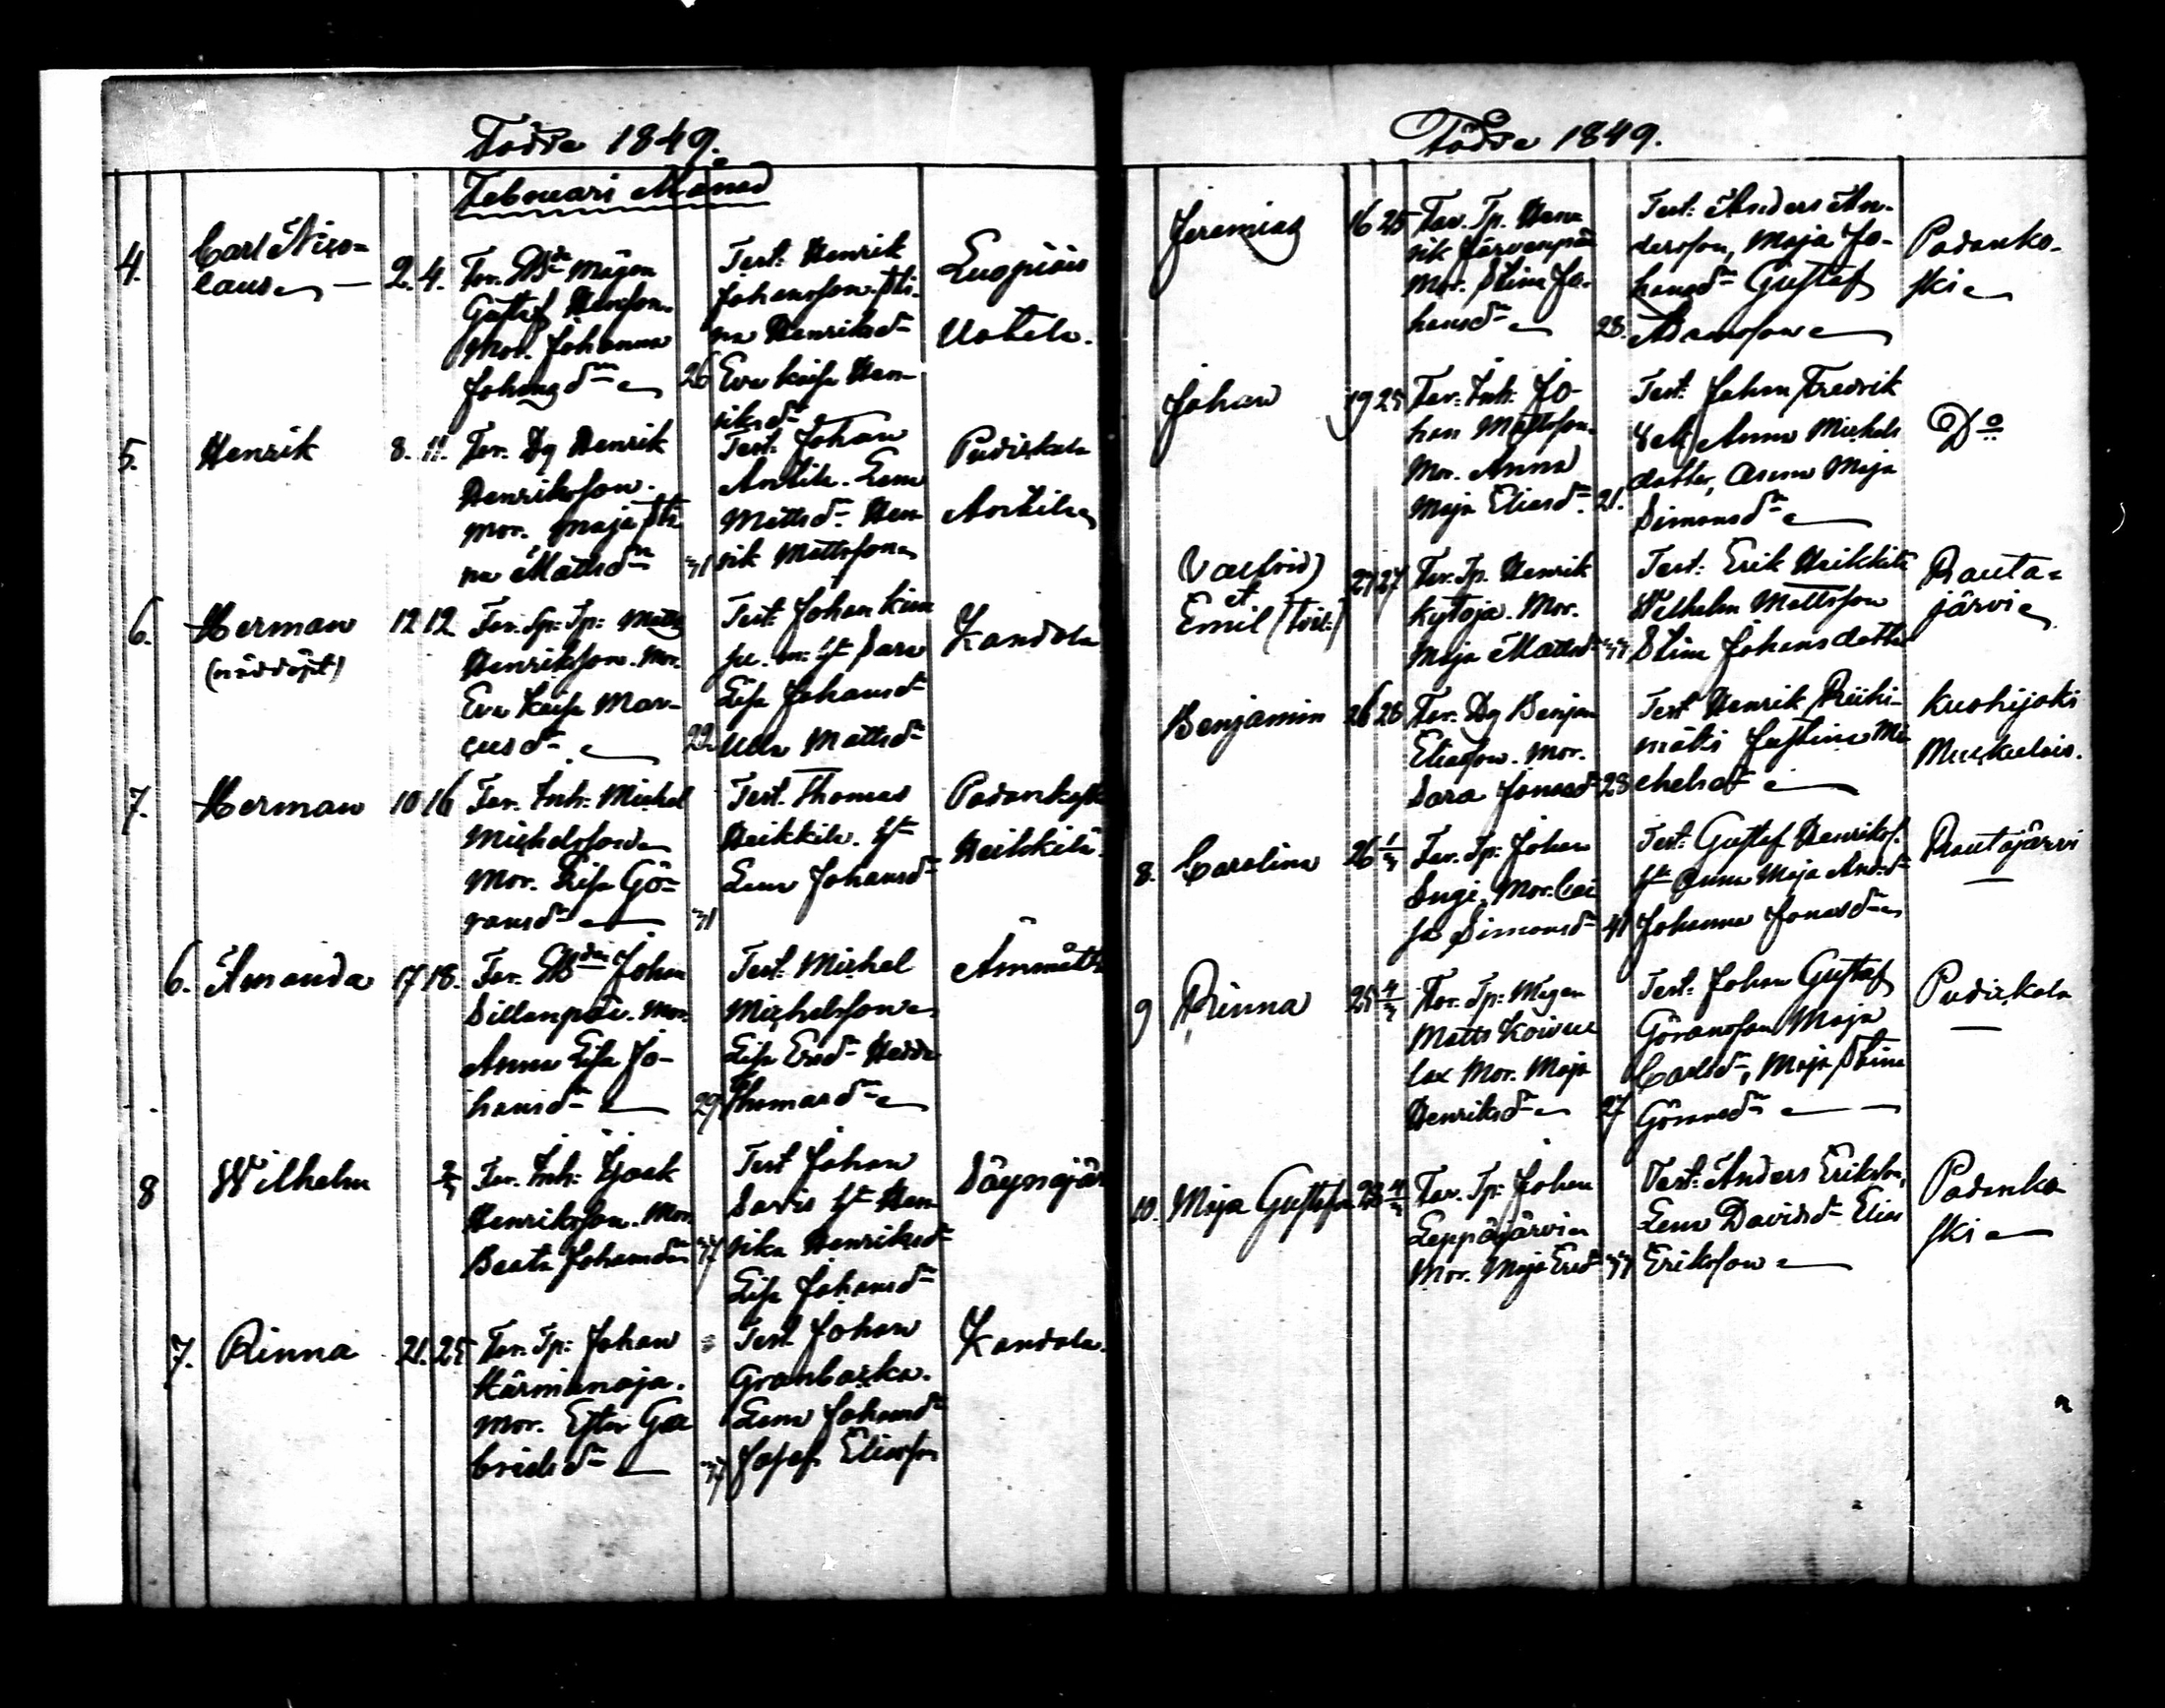 Födde 1849.
Februari Månad
4. Carl Nico-
laus 2. 4. Far. Bdn Mågen
Gustaf Henrsson.
Mor. Johanna
Johansdr 26
Test: Henrik
Johansson. Sti-
na Henriksdr
Eva Kaisa Hen-
riksdr
Luopiois
Uotila.
5. Henrik 8. 11. Far. Dg Henrik
Henriksson.
Mor. Maja Sti-
na Mattsdr 31
Test. Johan
Anttila. Lena
Mattsdr Hen-
rik Mattsson
Pudickala
Anttila
6. Herman 12 12 Far. Sp: Tp: Matts
(nöddöpt) Henriksson. Mor.
Eva Kaisa Mar-
cusdr 22.
Test: Johan
Sara
Lisa Johansdr
Ulla Mattsdr
Kandola
7. Herman 10 16 Far. Inh: Michel
Michelsson
Mor. Lisa Gö-
ransdr 31
Test. Thomas
Heikkilä. Hu
Lena Johansdr
Padankoski
Heikkilä.
6. Amanda 17 18. Far. Bdn Johan
Sillanpää. Mor.
Anna Lisa Jo-
hansdr 29
Test: Michel
Michelsson
Lisa Ersdr Hedda
Thomasdr
Ämmätt
8 Wilhelm 2/3 Far. Inh: Isaak
Henriksson. Mor.
Beata Johansdr 37
Test Johan
Hen-
rika Henriksdr
Lisa Johansdr
Säynäjär
7. Rinna 21. 25 Far. Tp: Johan
Kärmänoja.
Mor. Ester Ga-
brielsdr 37
Test. Johan
Granbacka.
Lena Johansdr
Josef Eliasson
Kandola.
Födde 1849.
Jeremias 16 25 Far. Tp. Hen-
rik Järvenpää
Mor. Stina Jo-
hansdr 28.
Test: Anders An-
dersson, Maja Jo-
hansdr Gustaf
Adamsson
Padanko-
ski
Johan 19 25 Far. Inh: Jo-
han Mattsson.
Mor. Anna
Maja Eliasdr 21.
Test: Johan Fredrik
Anna Michels
dotter, Anna Maja
Simonsdr
Do
(Valfrid)
et
Emil (tvil:) 27 27 Far. Tp. Henrik
Kytöjä. Mor.
Maja Mattsdr
Test: Erik Heikkilä
Wilhelm Mattsson
Stina Johansdotter
Rauta-
järvi
Benjamin 26 28 Far. Dg Benjam
Eliasson. Mor.
Sara Jonasdr 28
Test Henrik Riihi-
mäki Justina Mi-
chelsdr
Kuohijoki
8. Carolina 26 1/3 Far. Tp: Johan
Sugi. Mor. Cai-
sa Simonsdr 41
Test: Gustaf Henrikss.
Hu Anna Maja Andsdr
Johanna Jonasdr
Rautajärvi
9 Rinna 25 4/3 Far. Tp: Mågen
Matts Koivu-
lax Mor. Maja
Henriksdr 27
Test: Johan Gustaf
Göransson Maja
Carlsdr, Maja Stina
Göransdr
Pudickala
10. Maja Gustafva 23 4/3 Far. Tp: Johan
Leppäjärvi
Mor. Maja Ersdr
Test: Anders Eriksson,
Lena Davidsdr Elias
Eriksson
Padanko
ski